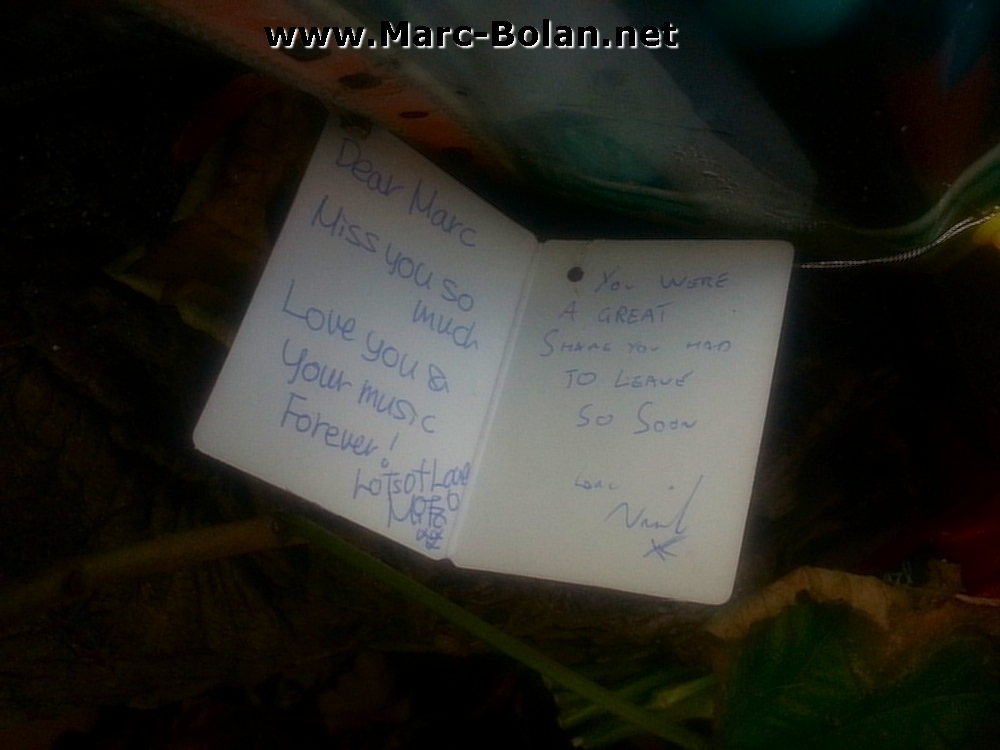 www.Marc-Bolan.net
Dear Marc
Miss you so
much
Love you &
Your music
Forever!
Lots of Love
You were
A GREAT
SHAME YOU HAD
TO LEAVE
SO SOON